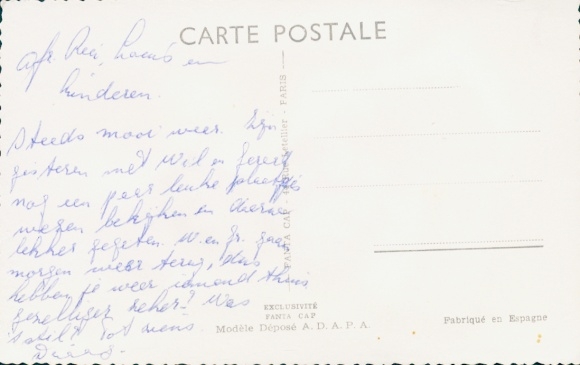 CARTE POSTALE
en
kinderen.
Steeds mooi weer. Zijn
gisteren met Wil en
nog een paar leuke plaatsjes
wezen bekijken en daarna
lekker gegeten. W. en gaan
morgen weer terug, dus
hebben je weer iemand thuis
gezelliger zeker? Was
Tot ziens
PARIS
FANIA CAP
EXCLUSIVITÉ
FANIA CAP
Modèle Déposé A. D. A. P. A.
Fabriqué en Espagne